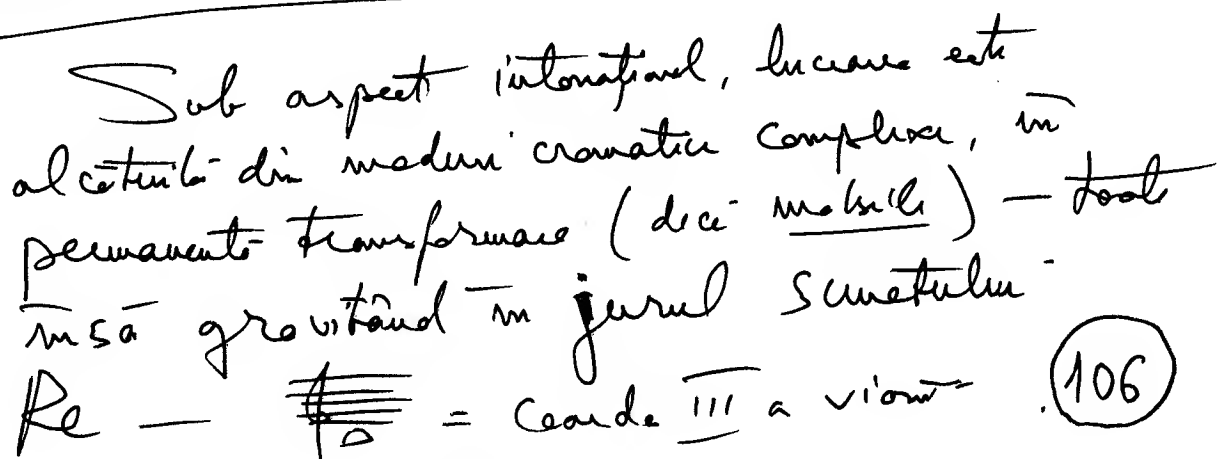 Sub aspect intonațional, lucrarea este
alcătuită din moduri cromatice complexe, în
permanentă transformare (deci mobile) — toate
însă gravitând în jurul sunetului
Re — = coarda III a viorii. 106